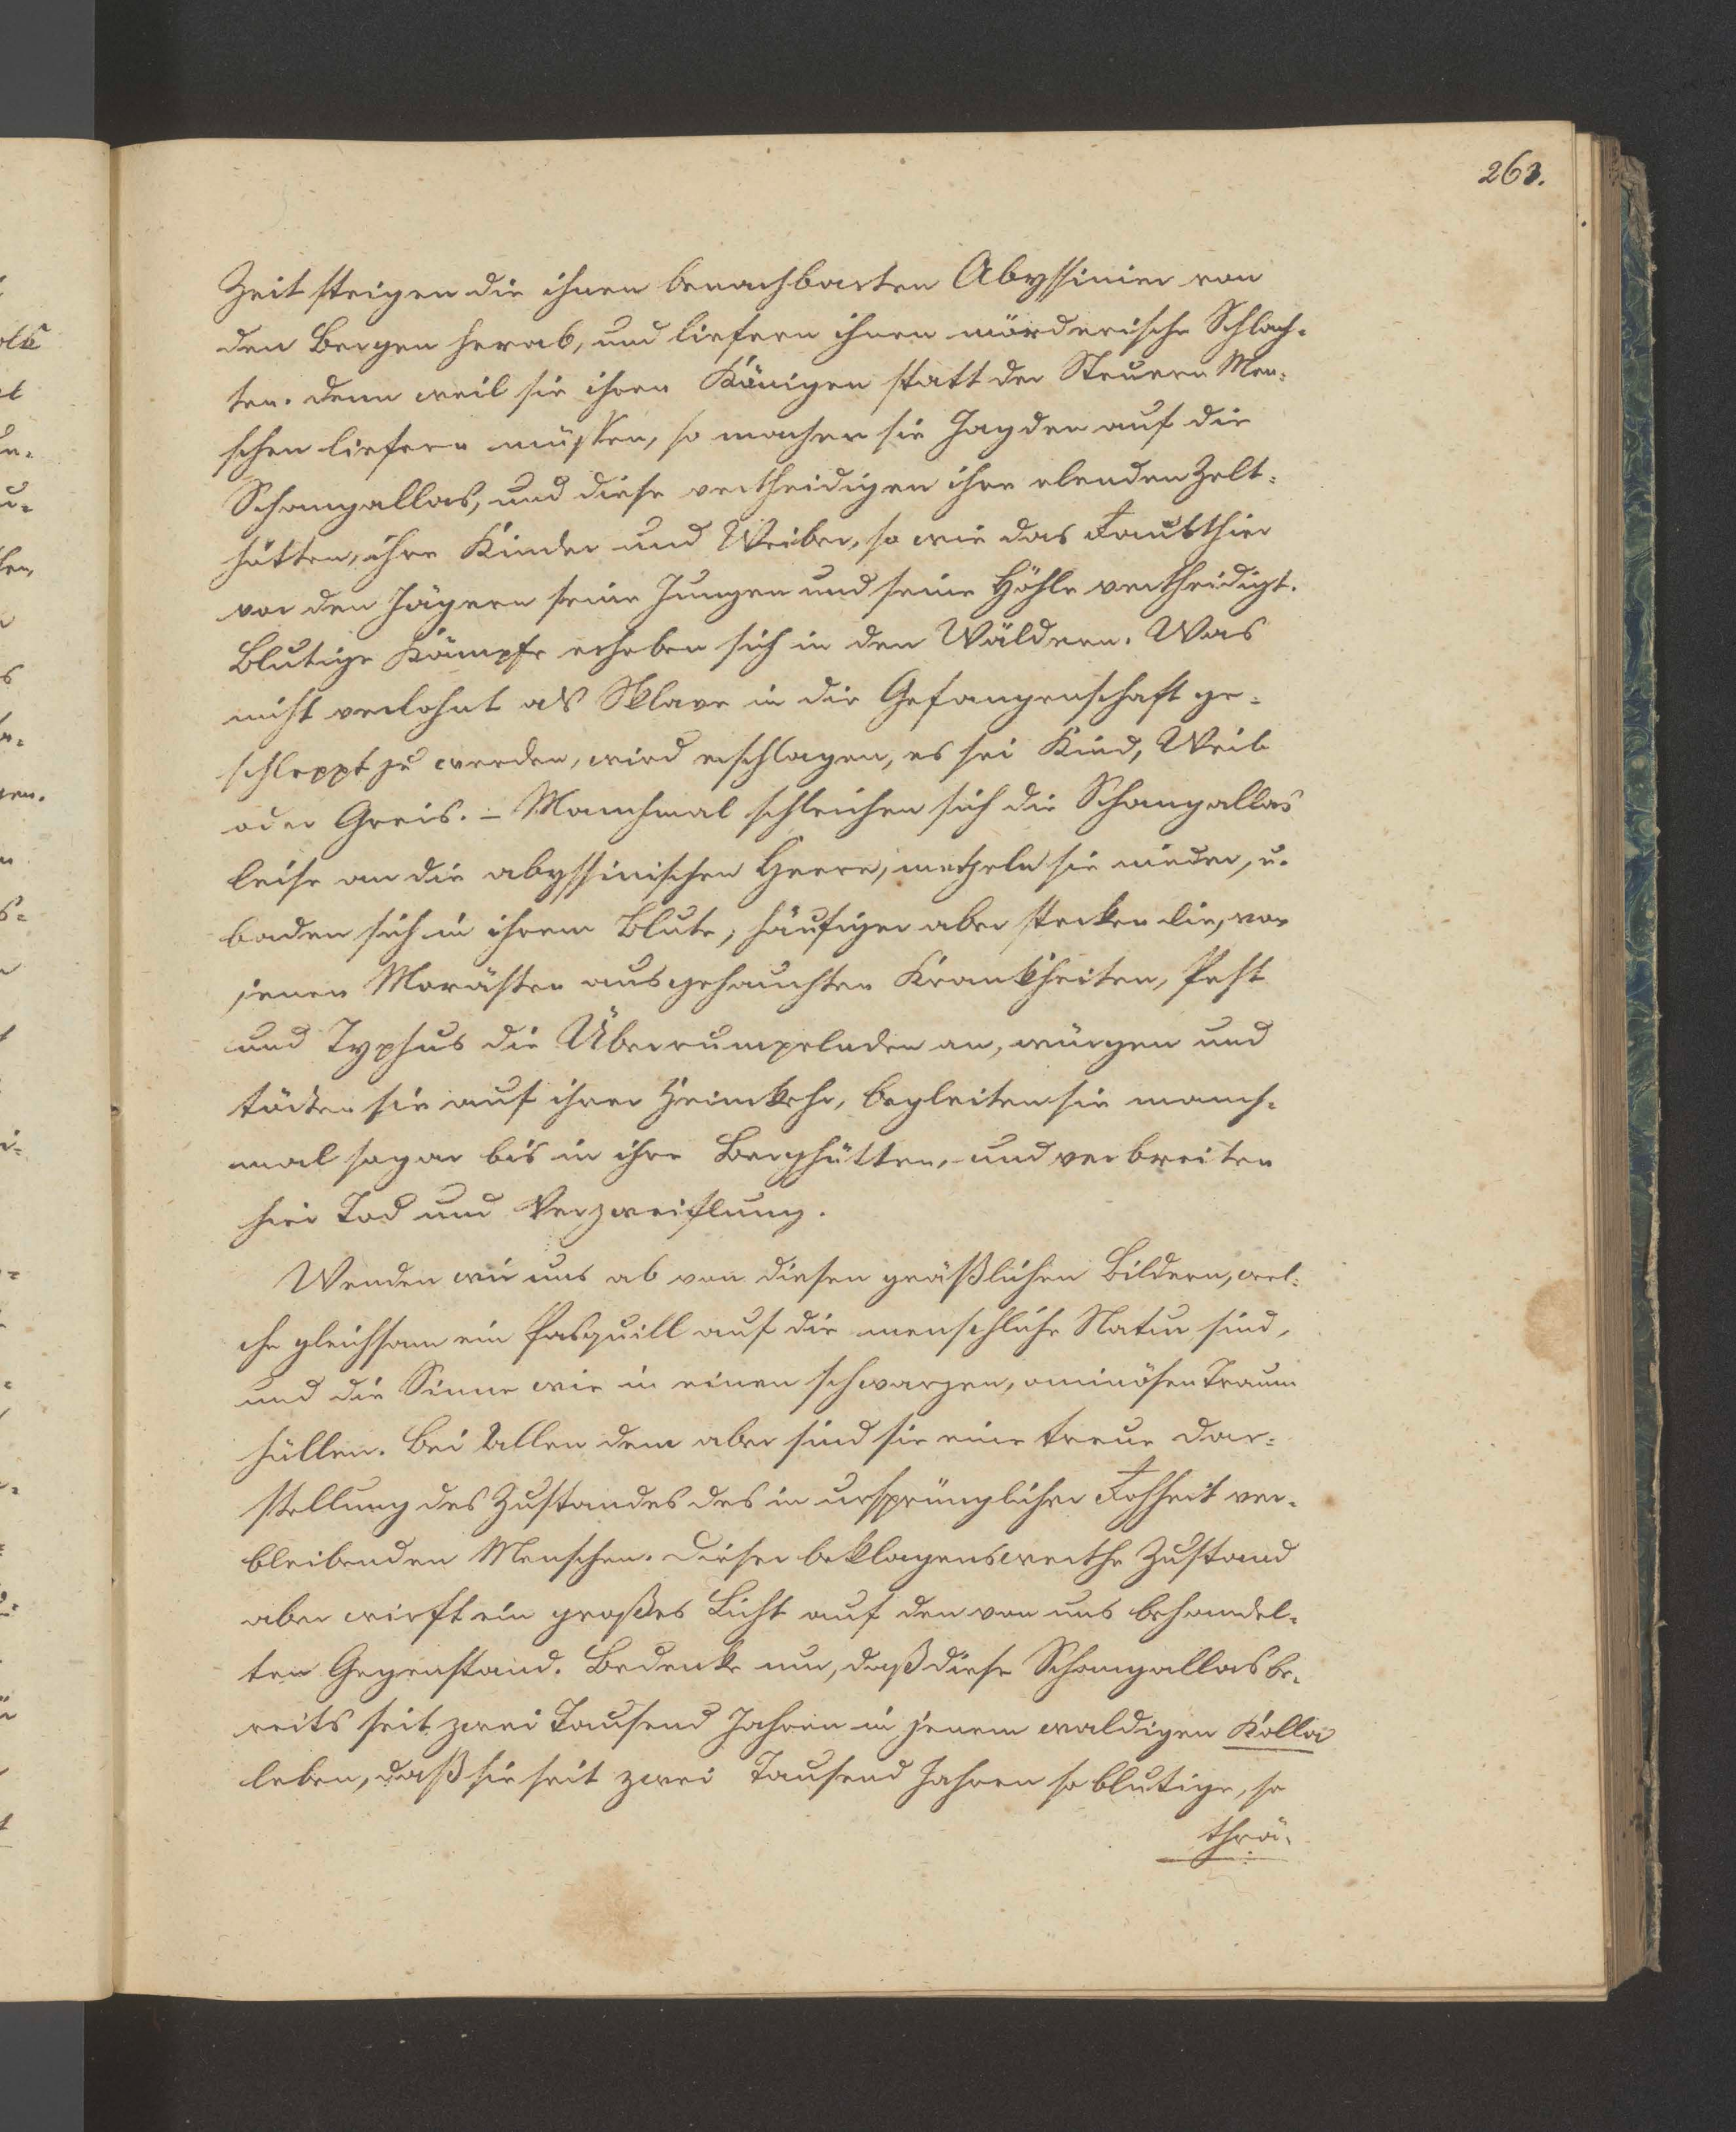 263.
Zeit steigen die ihnen benachbarten Abyssinier von
den Bergen herab, und liefern ihnen mörderische Schlach-
ten. Denn weil sie ihren Königen statt der Steuern Men-
schen liefern müssen, so machen sie Jagden auf die
Schangallas, und diese vertheidigen ihre elenden Zelt-
hütten, ihre Kinder und Weiber, so wie das Raubthier
vor den Jägern seine Jungen und seine Höhle vertheidigt.
Blutige Kämpfe erheben sich in den Wäldern. Was
nicht verlohnt als Sklave in die Gefangenschaft ge-
schleppt zu werden, wird erschlagen, es sei Kind, Weib
oder Greis. – Manchmal schleichen sich die Schangallas
leise an die abyssinischen Heere, metzeln sie nieder, u.
baden sich in ihrem Blute; häufiger aber stecken die, von
jenen Morästen ausgehauchten Krankheiten, Pest
und Typhus die Überrumpelnden an, würgen und
tödten sie auf ihrer Heimkehr, begleiten sie manch-
mal sogar bis in ihre Berghütten, und verbreiten
hier Tod und Verzweiflung.
Wenden wir uns ab von diesen gräßlichen Bildern, wel-
che gleichsam ein Pasquill auf die menschliche Natur sind,
und die Sinne wie in einen schwarzen, ominösen Traum
hüllen. Bei Allen dem aber sind sie eine treue Dar-
stellung des Zustandes des in ursprünglicher Rohheit ver-
bleibenden Menschen. Dieser beklagenswerthe Zustand
aber wirft ein großes Licht auf den von uns behandel-
ten Gegenstand. Bedenke nun, daß diese Schangallas be-
reits seit zwei Tausend Jahren in jenem waldigen Kolla
leben, daß sie seit zwei Tausend Jahren so blutige, so
thrä-